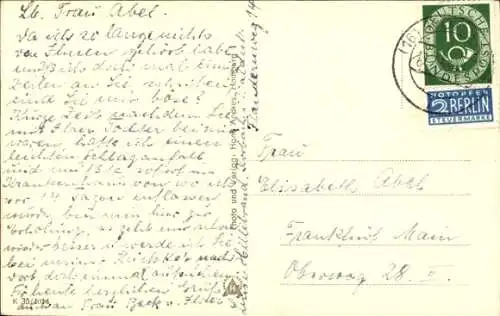 Lb. Frau Abel.
Da ich so lange nichts
von Ihnen gehört habe
muß ich doch mal einen
Zeilen an Sie schreiben
sind Sie mir böse?
Kurze Zeit nachdem Sie
mit Ihrer Tochter bei mir
waren, hatte ich einen
leichten Schlaganfall
und mußte sofort ins
Krankenhaus von wo ich
vor 14 Tagen entlassen
wurde, bin nun hier zur
Erholung, es geht mir schon
wieder besser u. werde ich Sie
bei meiner Rückkehr nach
dort doch einmal aufsuchen
Für heute herzlichen Gruß
auch an Frau Beck v. Ihrer
Photo und Verlag: Horst
K 30/4014
DEUTSCHE BUNDESPOST
10
NOTOPFER
2 BERLIN
STEUERMARKE
Frau
Elisabeth Abel
Frankfurt Main
Oberweg 28. II.